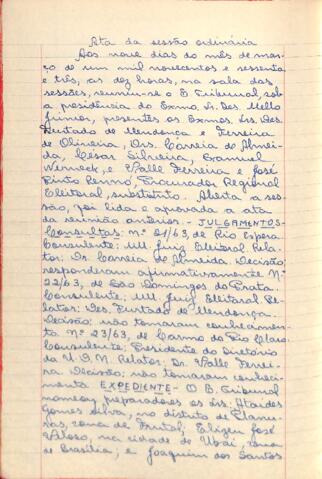 Ata da sessão ordinária
Aos nove dias do mês de mar-
ço de um mil novecentos e sessenta
e três, às dez horas, na sala das
sessões, reuniu-se o E. Tribunal, sob
a presidência do Exmo. Sr. Des. Mello
Junior, presentes os Exmos. Srs. Des.
Furtado de Mendonça e Ferreira
de Oliveira, Drs. Correia de Almei-
da, César Silveira,
Werneck, e Valle Ferreira e José
Pinto Rennó, Procurador Regional
Eleitoral, substituto. Aberta a ses-
são, foi lida e aprovada a ata
da reunião anterior. - JULGAMENTOS -
Consultas: nº 21/63, de Rio Espera
Consulente: MM. Juiz Eleitoral. Rela-
tor: Dr. Correia de Almeida. Decisão:
responderam afirmativamente. Nº
22/63, de São Domingos do Prata.
Consulente: MM. Juiz Eleitoral Re-
lator: Des. Furtado de Mendonça.
Decisão: não tomaram conhecimen-
to. Nº 23/63, de Carmo do Rio Claro
Consulente: Presidente do Diretório
da U.D.N. Relator: Dr. Valle Ferrei-
ra. Decisão: não tomaram conheci-
mento. EXPEDIENTE - O E. Tribunal
nomeou preparadores os Srs: Ataídes
Gomes Silva, no distrito de Planu-
ras, zona de Frutal; Elizeu José
Veloso, na cidade de Ubaí, zona
de Brasília; e Joaquim dos Santos